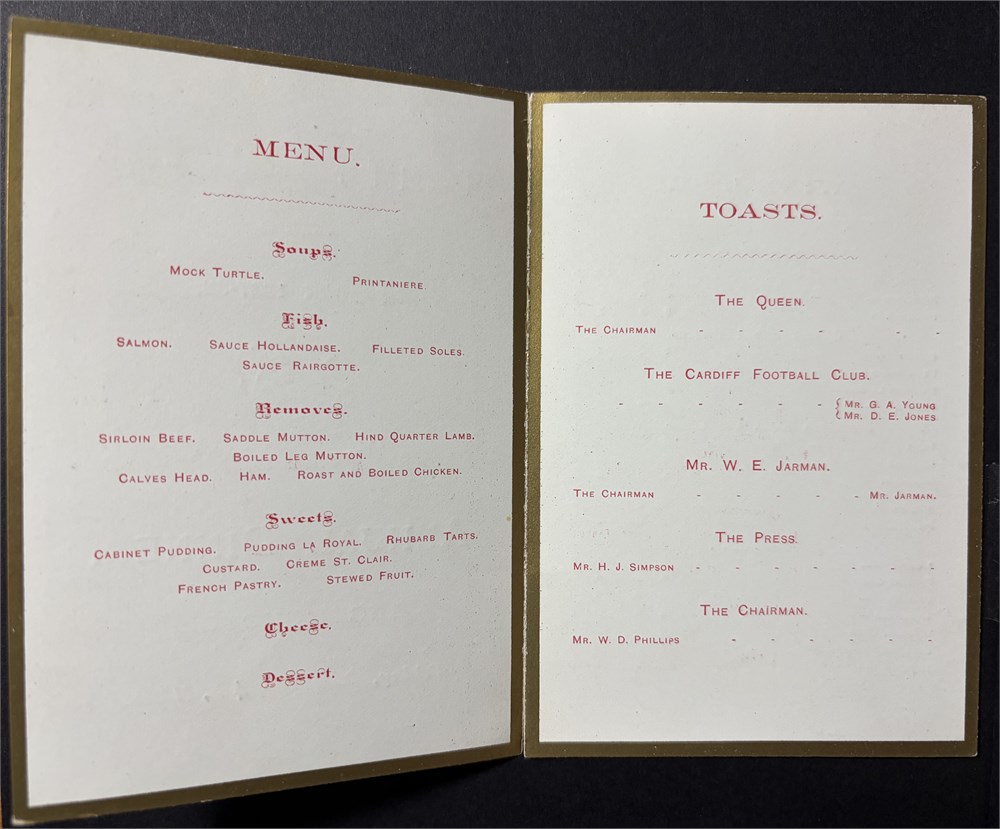 MENU.
Soups.
MOCK TURTLE. PRINTANIERE.
Fish.
SALMON. SAUCE HOLLANDAISE. FILLETED SOLES.
SAUCE RAIRGOTTE.
Removes.
SIRLOIN BEEF. SADDLE MUTTON. HIND QUARTER LAMB.
BOILED LEG MUTTON.
CALVES HEAD. HAM. ROAST AND BOILED CHICKEN.
Sweets.
CABINET PUDDING. PUDDING LA ROYAL. RHUBARB TARTS.
CUSTARD. CREME ST. CLAIR.
FRENCH PASTRY. STEWED FRUIT.
Cheese.
Dessert.
TOASTS.
THE QUEEN.
THE CHAIRMAN - - - - - -
THE CARDIFF FOOTBALL CLUB.
- - - - - - - { MR. G. A. YOUNG
MR. D. E. JONES
MR. W. E. JARMAN.
THE CHAIRMAN - - - - - - MR. JARMAN.
THE PRESS.
MR. H. J. SIMPSON - - - - - - - -
THE CHAIRMAN.
MR. W. D. PHILLIPS - - - - - -